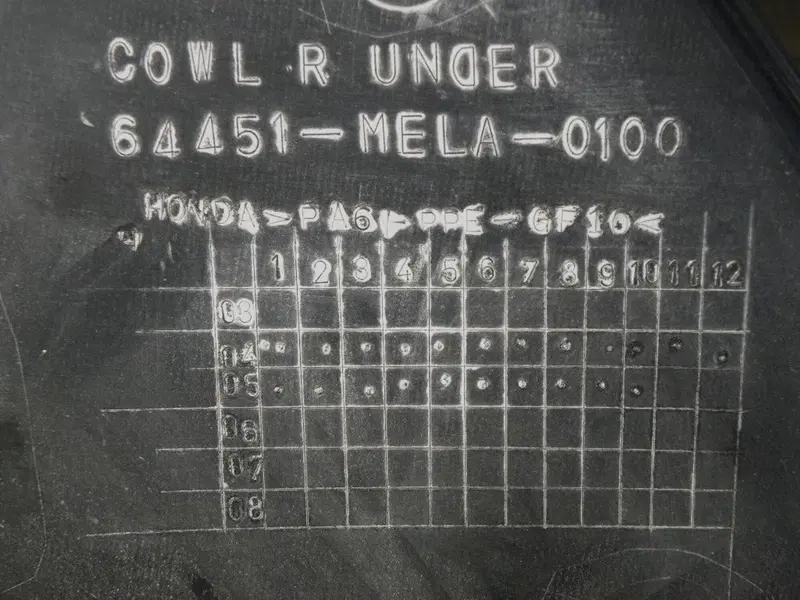 COWL R UNDER
64451-MELA-0100
HONDA >PA6+PPE-GF10<
1 2 3 4 5 6 7 8 9 10 11 12
03
04
05
06
07
08